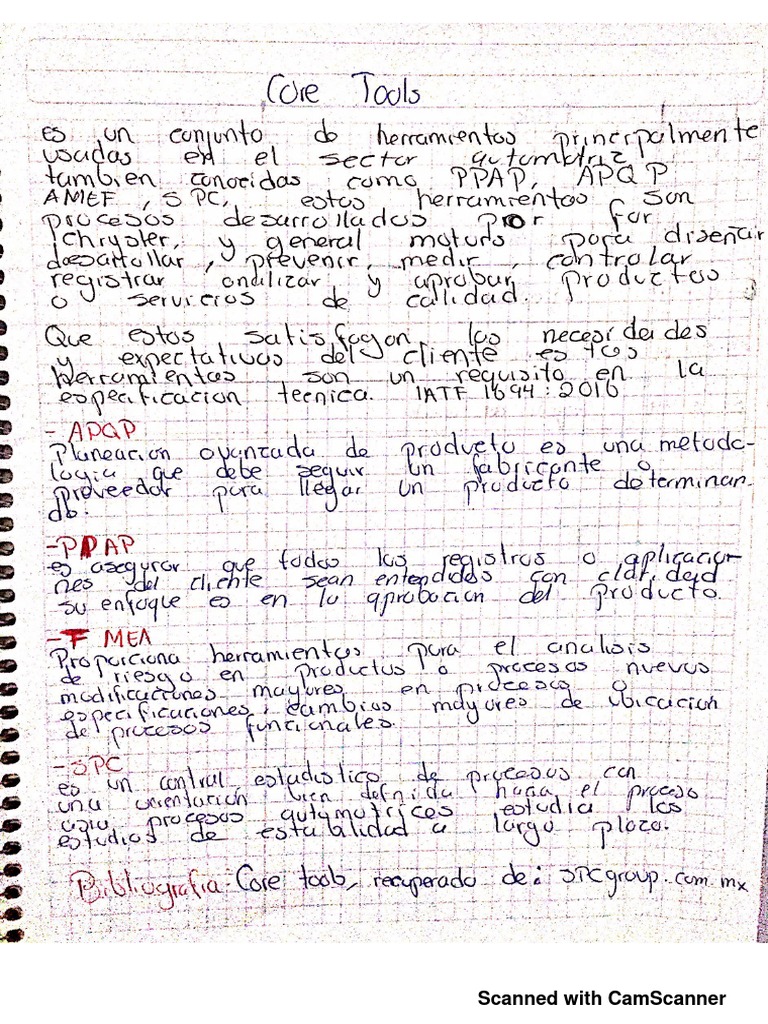 Core Tools
es un conjunto de herramientas principalmente
usadas en el sector automotriz,
tambien conocidas como PPAP, APQP
AMEF, SPC, estas herramientas son
procesos desarrollados por for
Chrysler, y general motors para diseñar
desarrollar, prevenir, medir, controlar
registrar analizar y aprobar productos
o servicios de calidad.
Que estos satisfagan las necesidades
y expectativas del cliente estas
Herramientas son un requisito en la
especificacion tecnica. IATF 1694:2016
- APQP
Planeacion avanzada de producto es una metodo-
logia que debe seguir un fabricante o
proveedor para llegar un producto determinan-
do.
- PPAP
es asegurar que todos los registros o aplicacio-
nes del cliente sean entendidos con claridad
su enfoque es en la aprobacion del producto.
- FMEA
Proporciona herramientas para el analisis
de riesgo en productos o procesos nuevos
modificaciones mayores en procesos o
especificaciones, cambios mayores de ubicacion
de procesos funcionales.
- SPC
es un control estadistico de procesos con
una orientación bien definida hacia el proceso
procesos automotrices estudia los
estudios de estabilidad a largo plazo.
Bibliografia: Core tools, recuperado de: SPCgroup.com.mx
Scanned with CamScanner